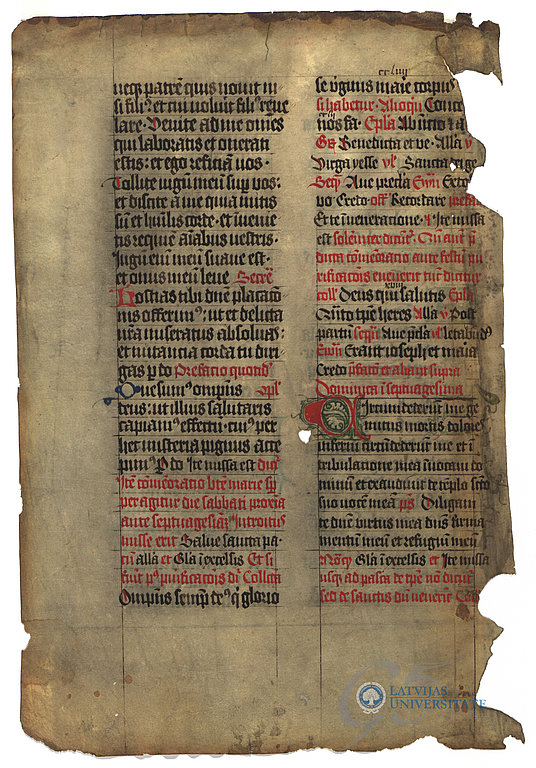 neqz patrē quis novit ni
si fili⁹ et cui voluit fili⁹ reve
lare · Venite ad me om̄es
qui laboratis et onerati
estis : et ego reficiā vos ·
Tollite iugū meū sup vos :
et discite a me quia mitis
sū et hūilis corde · et invenie
tis requiē aīabus vestris ·
Iugū em̄ meū suave est ·
et onus meū leve Secrē
Hostias tibi dn̄e placacō
nis offerim⁹ : ut et delicta
nr̄a miseratus absolvas :
et nutancia corda tu diri
gas p do Prefacio quond
Quesum⁹ omnips ɔpl
deus : ut illius salutaris
capiam⁹ effectū · cui⁹ per
hec misteria pignus acce
pim⁹ P do Ite missa est
Itē cōmēoracio btē marie sp
per agitur die sabbati proxīa
ante septuagesiā Introitus
misse erit Salve sancta pa
rēs allā et Glā ī excelsis Et si
fiūt p⁹ purificacōis dr̄ Collcā
Omnips semp de⁹ q̄ glorio
cxliiij
se v̓ginis maie corpus
si habetur · Alioqn̄ Conce
nos fa · Epl̄a Ab inicio
Gr̄ Benedicta et ve · Allā v
Virga yesse vl̓ Sancta
Seq̄ Ave p̄cla Evn̄
vo Credo off̄ Recordare prefa
Et te ī veneratione · Ite missa
est solēniter dicit̓ · Cū aut̄ p̄
dicta cōmēoracio ante festū pu
rificacōis evenerit tūc dicitur
coll̄ Deus qui salutis Epl̄a
Quīto tp̄e heres Allā v Post
partū seq̄n Ave p̄cla vl̓ letabūd
Ewn̄ Erant ioseph et maria
Credo p̄facō et alia ut supra
Dominica ī septuagesima
Circumdederūt me ge
mitus mortis dolores
inferni circūdederūt me et ī
tribulatione mea īvocavi do
minū et exaudivit de tēplo sc̄to
suo vocē meā ps̄ Diligam
te dn̄e virtus mea dn̄s firma
mentū meū et refugiū meū
Glā ī excelsis et Ite missa
usq̨ ad pasca de tp̄e nō dicit̓
sed de sanctis cū venerit
LATVIJAS
UNIVERSITĀTE